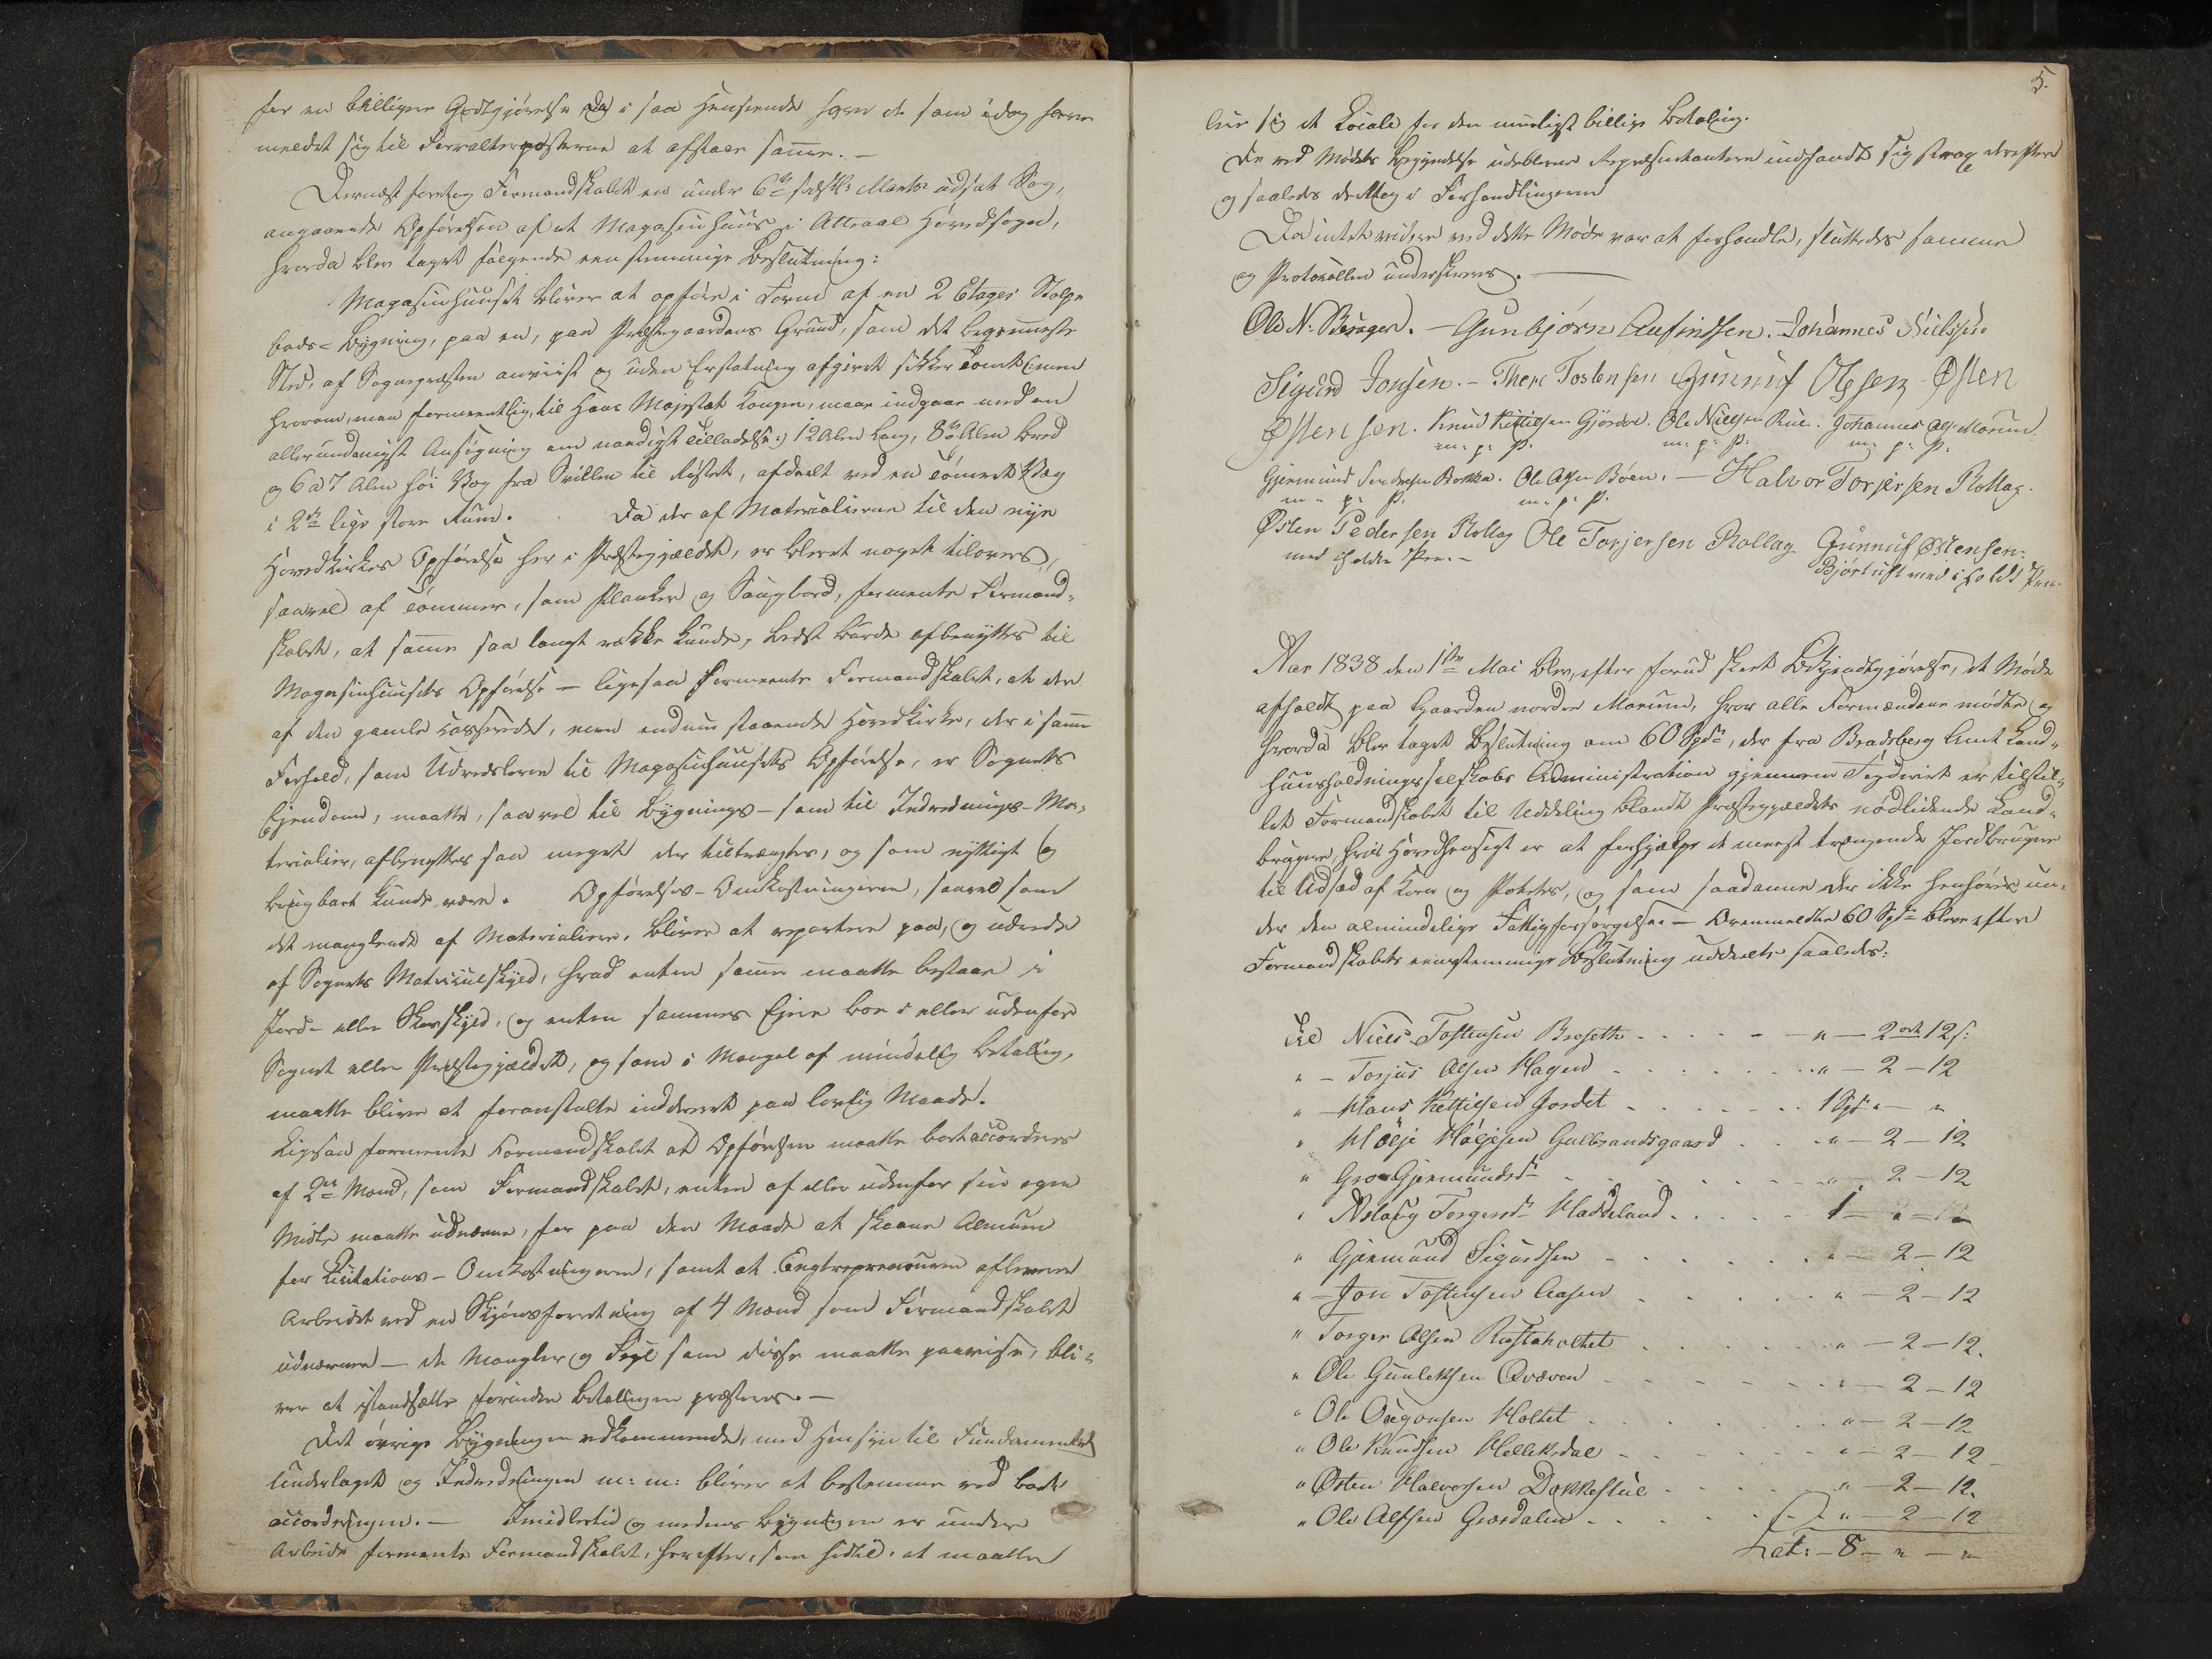 for en billigere Godtgjørelse da i saa Henseende have de som idag have
meldet sig til Forvalterposterne at afstaae samme. —
Dernæst foretog Formandskabet en under 6te sidstl: Marts udsat Sag,
angaaende Opførelsen af et Magasinhuus i Attraae Hovedsogn,
hvorda blev taget følgende eenstemmige Beslutning:
Magasinhuuset bliver at opføre i Form af en 2 Etages Stolpe
bods-Bygning, paa en, paa Præstegaardens Grund, som det beqvemmeste
Sted, af Sognepræsten anviist og uden Erstatning afgivet sikker Tomt (:men
hvorom, man formeentlig, til Hans Majestæt Kongen, maae indgaae med en
allerunderdanigst Ansøgning om naadigst Tilladelse:) 12 Alen lang, 8te Alen bred
og 6 a 7 Alen høi Væg fra Svillen til Røstet, afdeelt ved en tømret Væg
i 2de lige store Rum. Da der af Materialierne til den nye
Hovedkirkes Opførelse her i Præstegjældet, er blevet noget tilovers,
saavel af Tømmer, som Planker og Saugbord, formente Formand-
skabet, at samme saa langt række kunde, bedst burde afbenyttes til
Magasinhuusets Opførelse — ligesaa formeente Formandskabet, at der
af den gamle casserede, men endnu staaende Hovedkirke, der i samme
Forhold, som Udrederne til Magasinhuusets Opførelse, er Sognets
Ejendom, maatte, saavel til Bygnings- som til Indrednings-Ma-
terialier, afbenyttes saa meget der tiltrængtes, og som nyttigt og
brugbart kunde være. Opførelses-Omkostningerne, saavel som
det manglende af Materialier, bliver at repartere paa, og udrede
af Sognets Matriculskyld, hvad enten samme maatte bestaae i
Jord- eller Skovskyld, og enten sammes Ejere boe i eller udenfor
Sognet eller Præstegjældet, og som i Mangel af mindelig Betaling,
maatte blive at foranstalte inddrevet paa lovlig Maade.
Ligesaa formente Formandskabet at Opførelsen maatte bortaccorderes
af 2de Mænd, som Formandskabet, enten af eller udenfor sin egen
Midte maatte udnævne, for paa den Maade at skaane Almuen
for Licitations-Omkostningerne, samt at Engtrepreneuren afleverer
Arbeidet ved en Skjønsforretning af 4 Mænd som Formandskabet
udnævner — de Mangler og Feyl som disse maatte paavise, bli-
ver at istandsætte forinden Betalingen præsteres. —
Det øvrige Bygningen vedkommende, med Hensyn til Fundamentets
Underlaget og Indredningen m: m: bliver at bestemme ved bort-
accorderingen. — Imidlertid og medens Bygningen er under
Arbeide formente Formandskabet, herefter, som hidtil, at maatte
5.
leie sig et Locale for den mueligst billige Betaling.
De ved Mødets Begyndelse udeblevne Repræsentantere indfandt sig strax derefter
og saaledes deeltog i Forhandlingerne
Da intet videre ved dette Møde var at forhandle, sluttedes samme
og Protokollen underskreves. —
Ole N: Beragen. — Gunbjørn Aufindsen. Johannes Nielsen
Sigurd Jonsen. — Thore Tostensen Gunnuf Olssen Østen
Østensen. Knud Kittilsen Gjordet. Ole Nielsen Rue. Johannes Ols: Moruen
m: p: P. m: p: P: m: p: P.
Gjermund Sondresen Bakka. Ole Olsen Bøen. — Halvor Torjersen Rollag.
m: p: P. m: p: P.
Østen Pedersen Rollag Ole Torjersen Rollag Gunnuf Østensen:
med iholden Pen. — Bjørtuft med iholdt Pen.
Aar 1838 den 1ste Mai blev, efter forud skeet Bekjendtgjørelse, et Møde
afholdt paa Gaarden nordre Moruen, hvor alle Formændene mødte og
hvorda blev taget Beslutning om 60 Spd, der fra Bradsberg Amts Land-
huusholdningsselskabs Administration gjennem Fogderiet er tilstil-
let Formandskabet til Uddeling blandt Præstegjældets nødlidende Land-
brugere, hvis Hovedhensigt er at forhjælpe de meest trængende Jordbrugere
til Udsæd af Korn og Poteter, og som saadanne der ikke henhører un-
der den almindelige Fattigforsørgelse — Ovenmeldte 60 Spd bleve efter
Formandskabets eenstemmige Beslutning uddeelte saaledes:
Til Niels Tostensen Broseth . . . " — 2 ort 12 s:
" — Torjus Olsen Hagen . . . " — 2 — 12
" — Hans Kettilsen Jordet . . . 1 Spd " — "
" Høljе Høljesen Gulbrandsgaard . . . " — 2 — 12
" Groe Gjermundsd . . . " — 2 — 12
" Aslaug Torgersd Haddeland . . . 1 — " — "
" Gjermund Sigurdsen . . . " — 2 — 12
" — Jon Tostensen Aasen . . . " — 2 — 12
" Torger Olsen Rustaholtet . . . " — 2 — 12.
" Ole Gunleiksen Qværn . . . " — 2 — 12
" Ole Oregonsen Holtet . . . " — 2 — 12
" Ole Knudsen Helleksdal . . . " — 2 — 12
" Østen Halvorsen Dokkestul . . . " — 2 — 12.
" Ole Alfsen Grosdalen . . . " — 2 — 12
Lat: — 8 — " — "